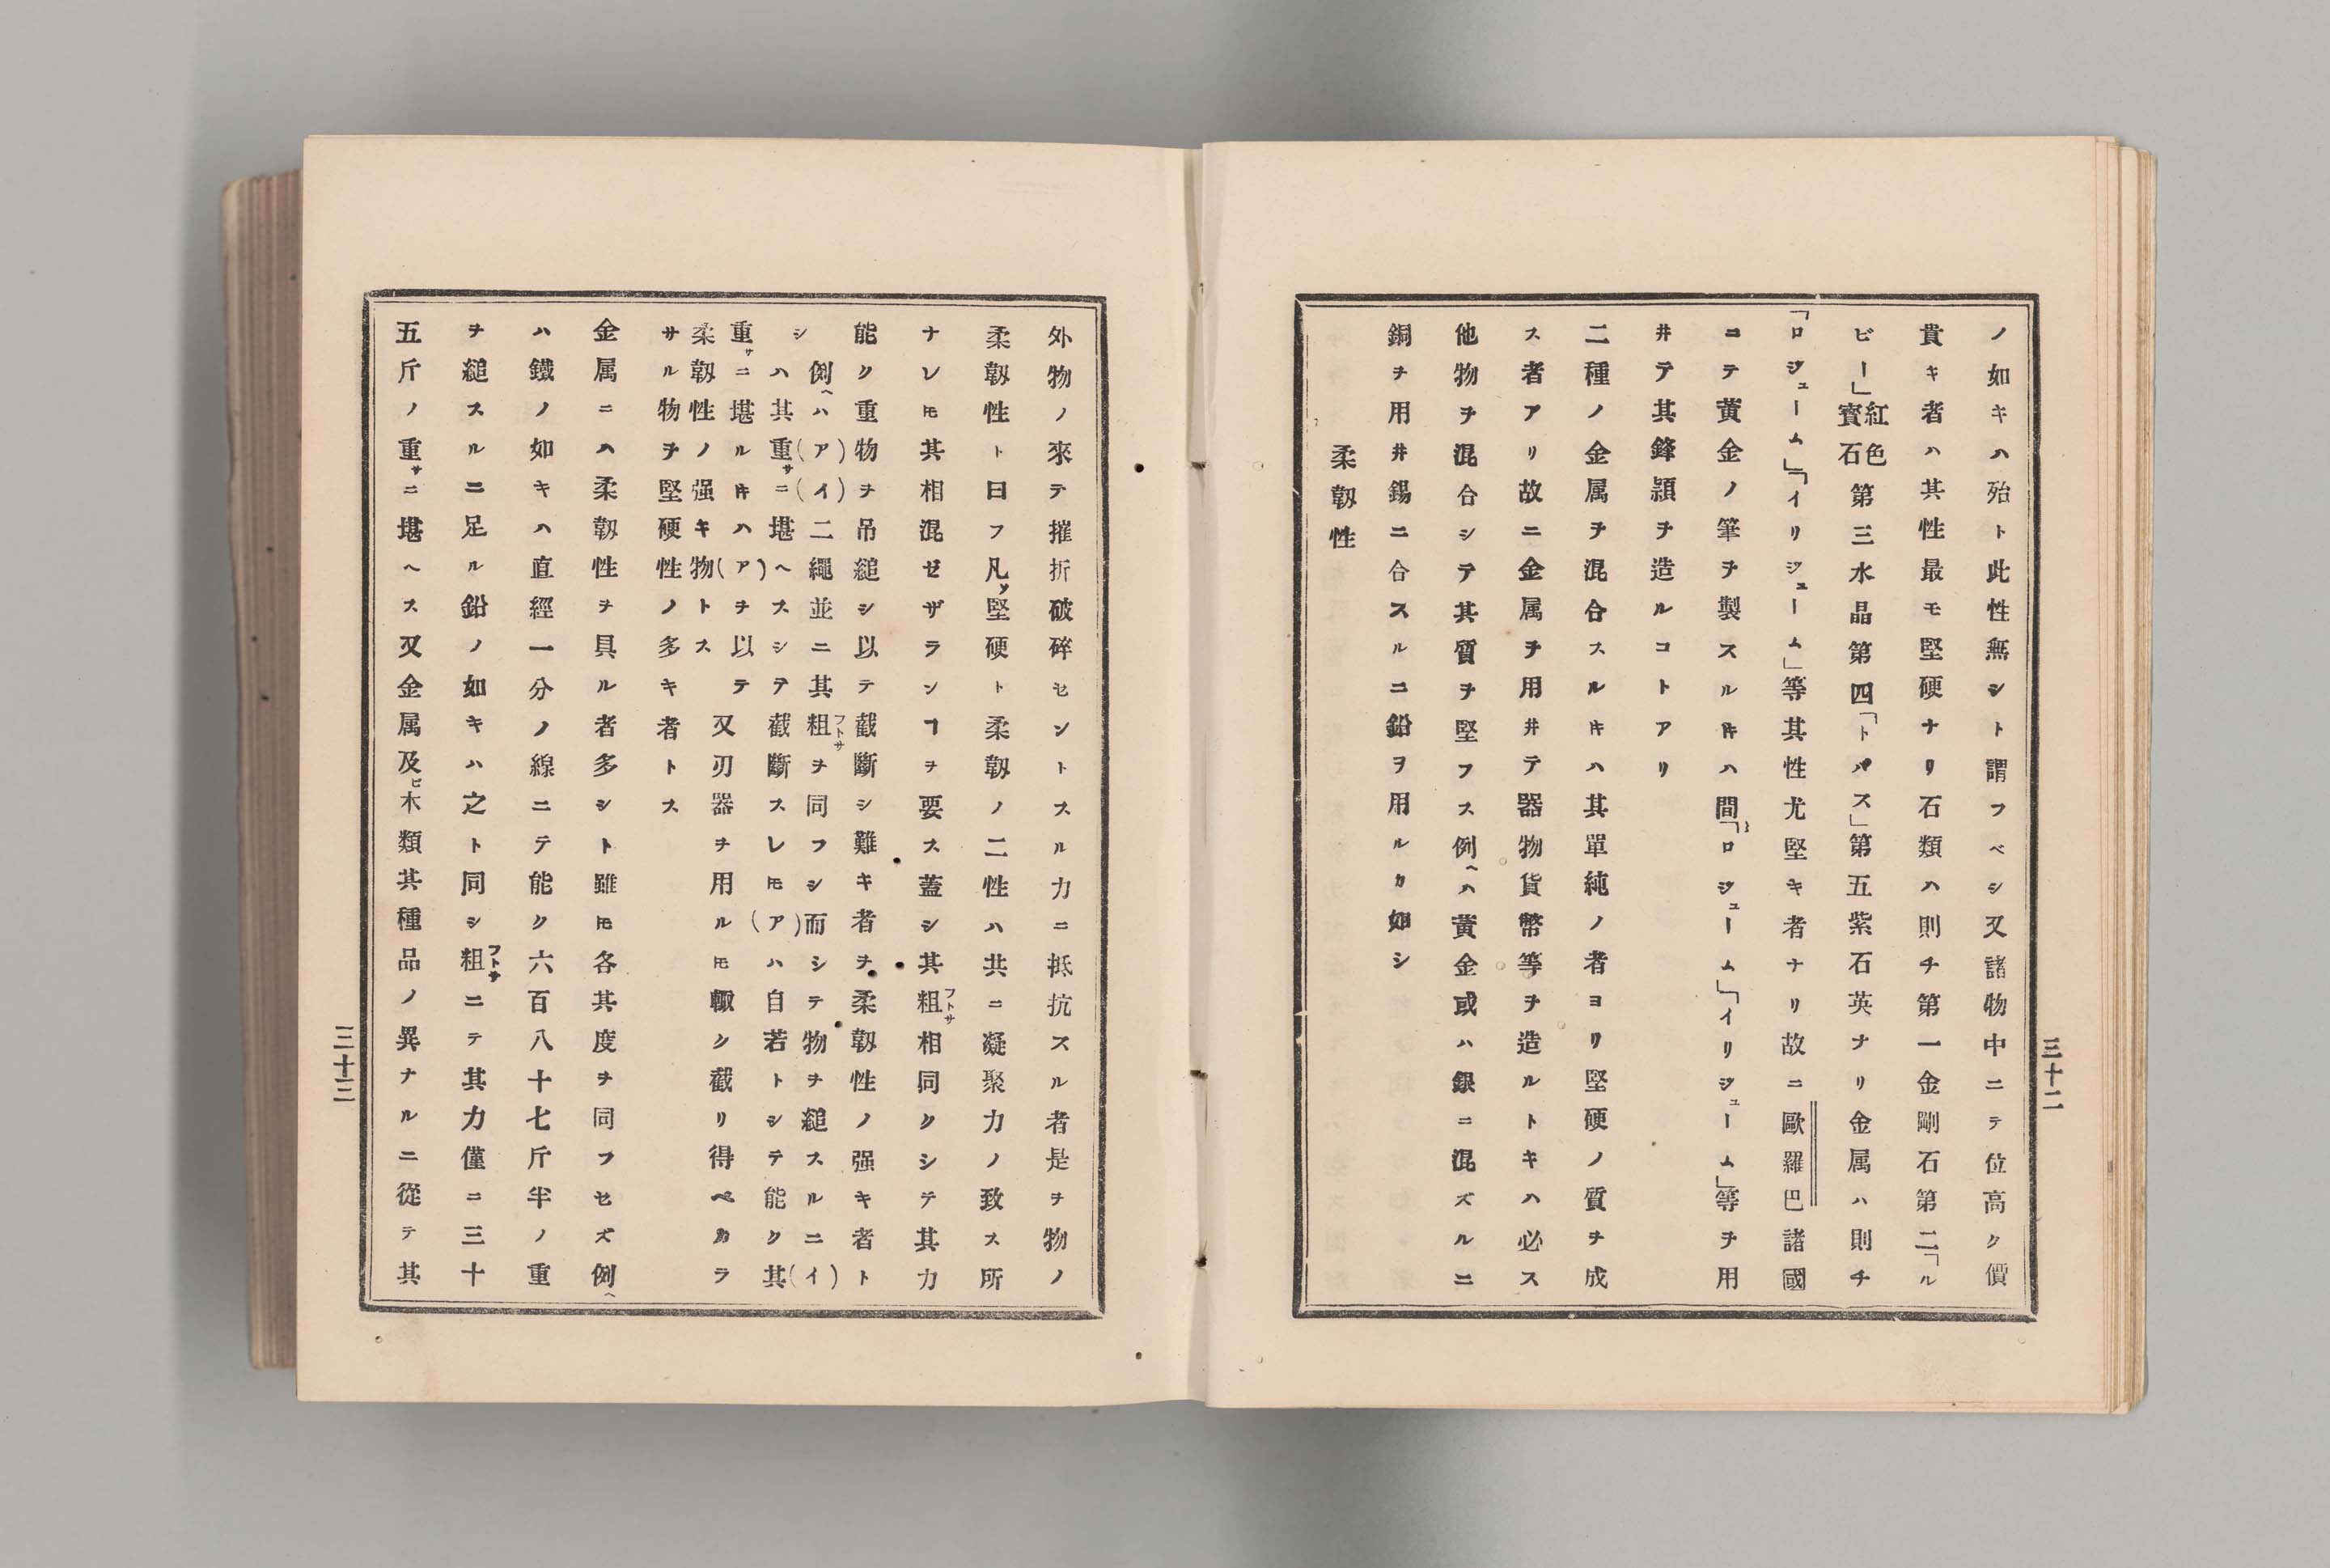 ノ如キハ殆ト此性無シト謂フベシ又諸物中ニテ位高ク價
貴キ者ハ其性最モ堅硬ナリ石類ハ則チ第一金剛石第二「ル
ビー」紅色寶石第三水晶第四「トパス」第五紫石英ナリ金属ハ則チ
「ロヂューム」「イリヂューム」等其性尤堅キ者ナリ故ニ歐羅巴諸國
ニテ黄金ノ筆ヲ製スルㇳキハ間〻「ロヂューム」「イリヂューム」等ヲ用
井テ其鋒頴ヲ造ルコトアリ
二種ノ金属ヲ混合スルㇳキハ其單純ノ者ヨリ堅硬ノ質ヲ成
ス者アリ故ニ金属ヲ用井テ器物貨幣等ヲ造ルトキハ必ス
他物ヲ混合シテ其質ヲ堅フス例ヘハ黄金或ハ銀ニ混ズルニ
銅ヲ用井錫ニ合スルニ鉛ヲ用ルカ如シ
柔韌性
三十二
外物ノ來テ摧折破碎セントスル力ニ抵抗スル者是ヲ物ノ
柔韌性ト曰フ凡ソ堅硬ト柔韌ノ二性ハ共ニ凝聚力ノ致ス所
ナレㇳモ其相混ゼザランヿヲ要ス蓋シ其粗フトサ相同クシテ其力
能ク重物ヲ吊縋シ以テ截斷シ難キ者ヲ柔韌性ノ强キ者ト
シ
例ヘハ(ア)(イ)二繩並ニ其粗フトサヲ同フシ而シテ物ヲ縋スルニ(イ)
ハ其重サニ堪ヘスシテ截斷スレㇳモ(ア)ハ自若トシテ能ク其
重サニ堪ルㇳキハ(ア)ヲ以テ
柔韌性ノ强キ物トス
又刃器ヲ用ルㇳモ輙ク截リ得ベカラ
サル物ヲ堅硬性ノ多キ者トス
金属ニハ柔韌性ヲ具ル者多シト雖ㇳモ各其度ヲ同フセズ例ヘ
ハ鐵ノ如キハ直經一分ノ線ニテ能ク六百八十七斤半ノ重
ヲ縋スルニ足ル鉛ノ如キハ之ト同シ粗フトサニテ其力僅ニ三十
五斤ノ重サニ堪ヘス又金属及ヒ木類其種品ノ異ナルニ從テ其
三十三